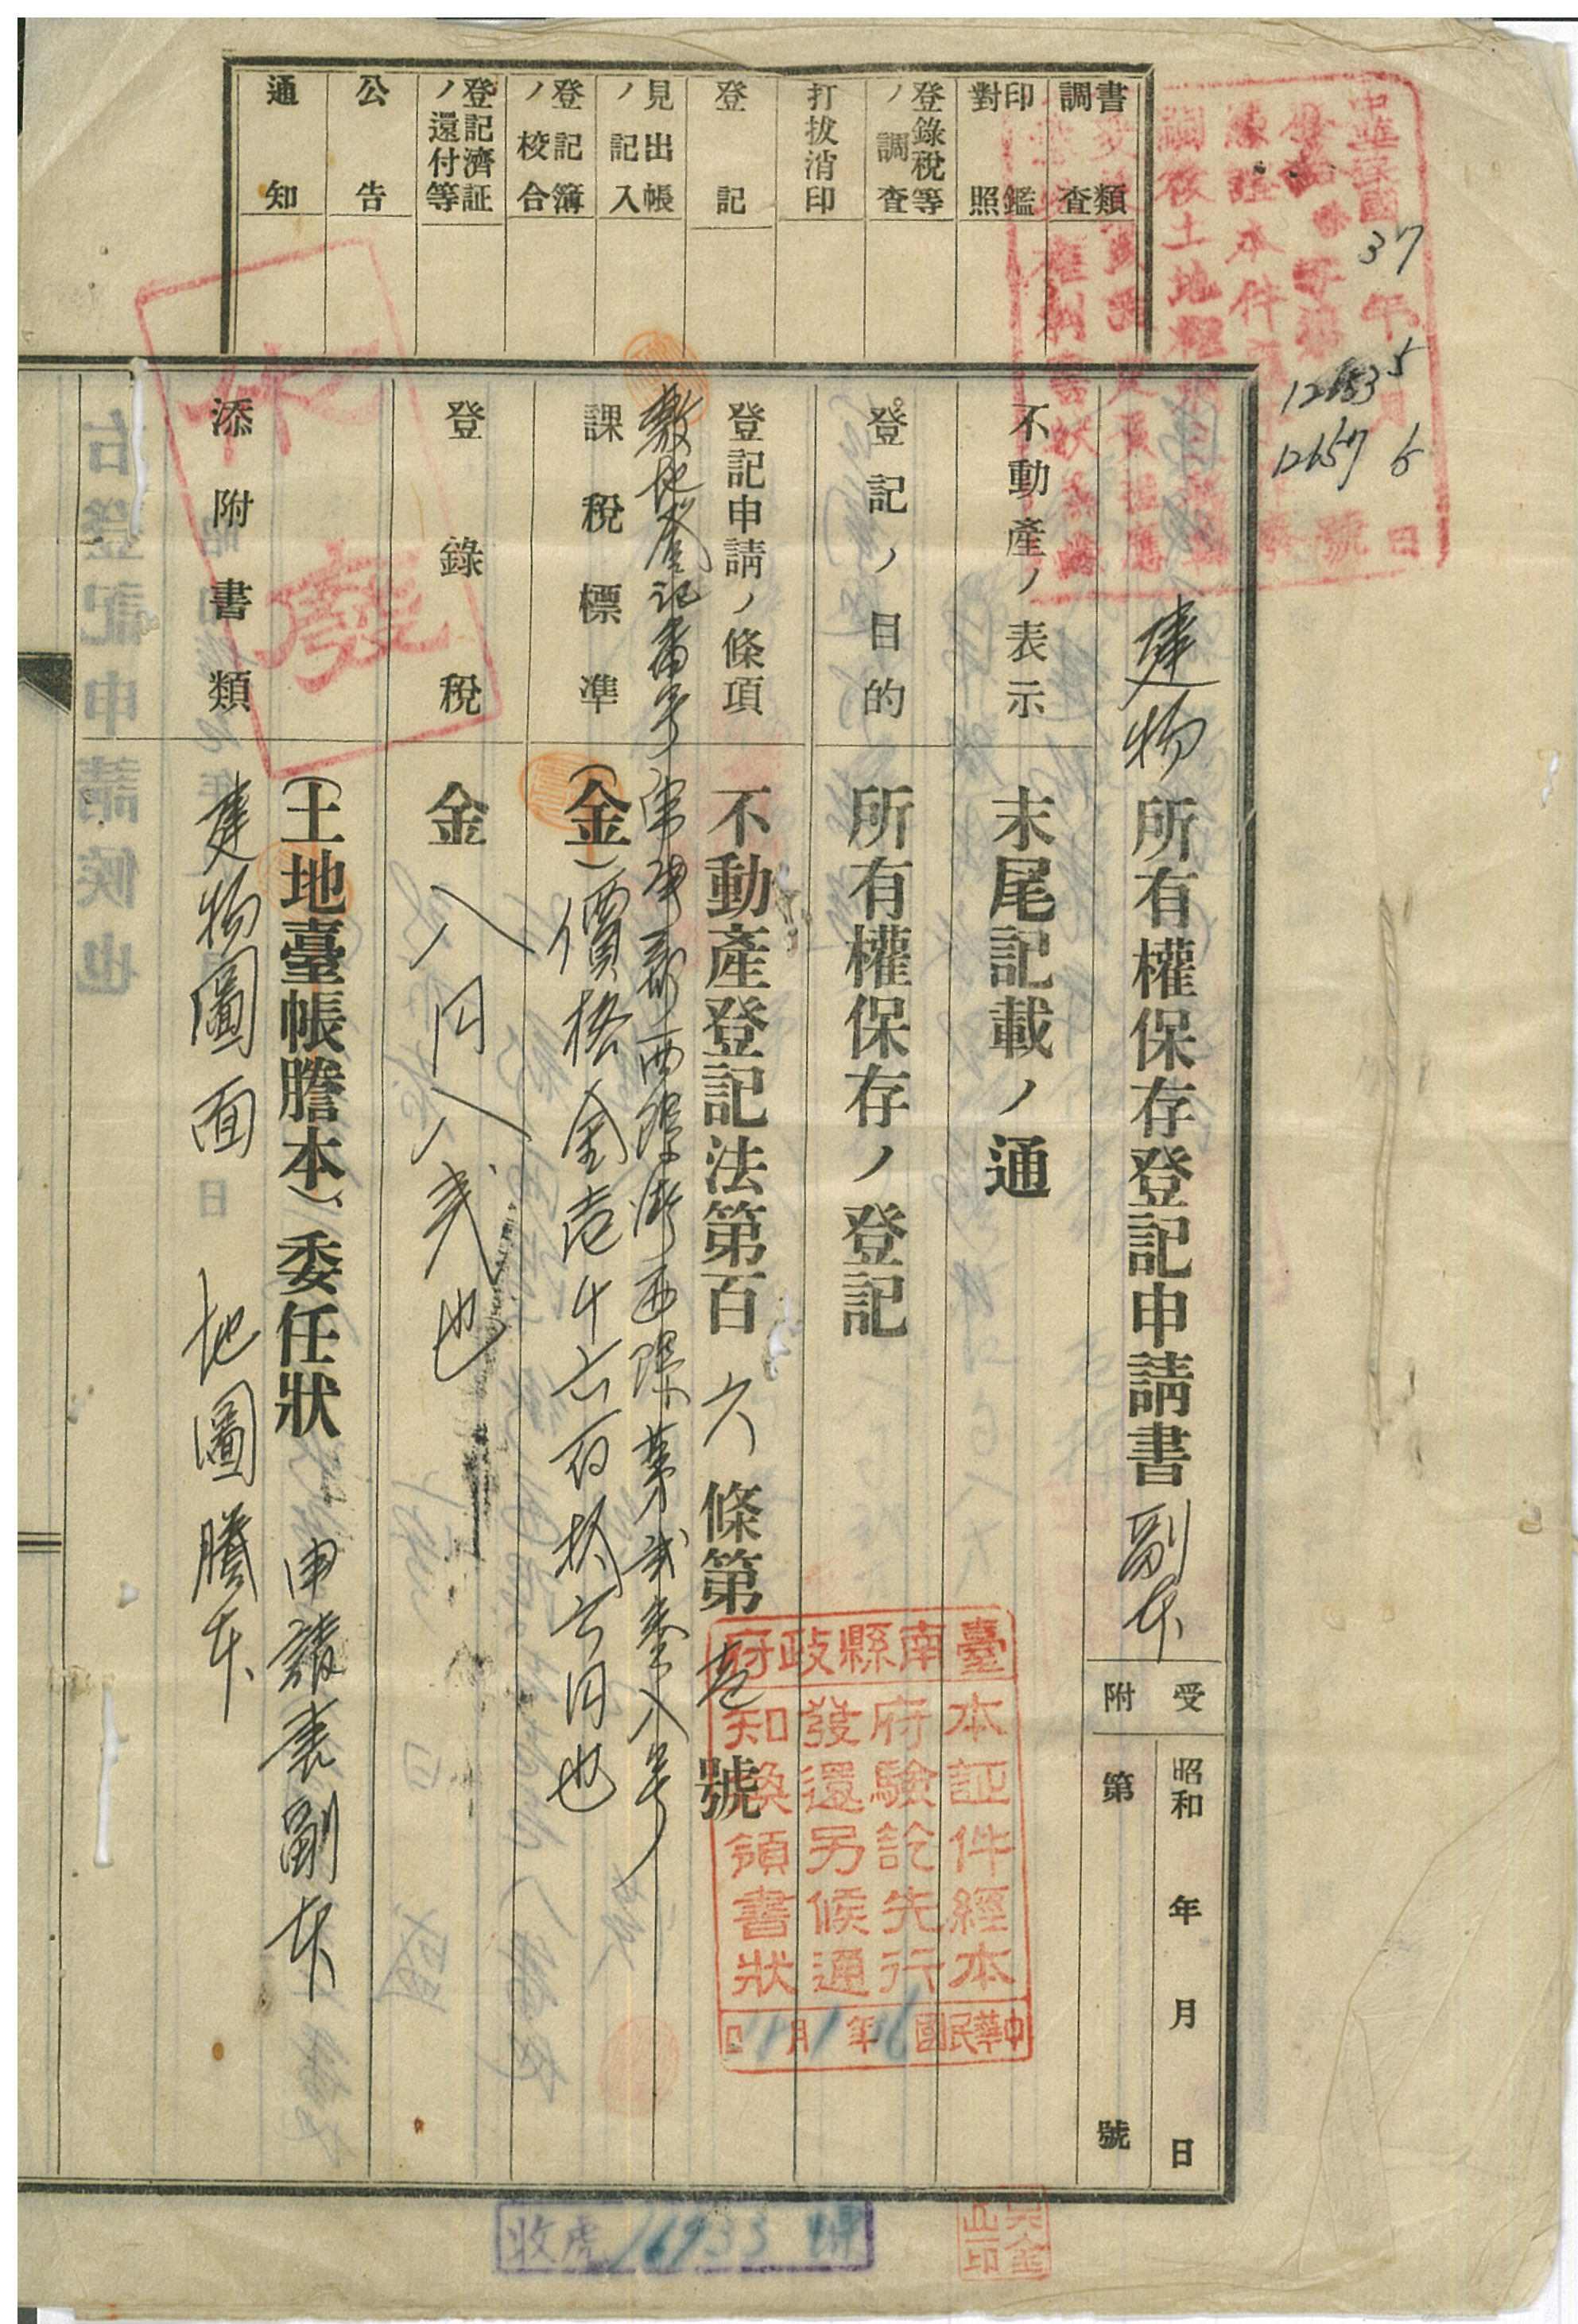 書類調査
印鑑對照
登錄稅等ノ調査
打拔消印
登記
見出帳ノ記入
登記簿ノ校合
登記濟証ノ還付等
公告
通知
中華民國37年5月6日
12657
號
建物所有權保存登記申請書副本
受附
昭和 年 月 日
第 號
不動產ノ表示
末尾記載ノ通
登記ノ目的
所有權保存ノ登記
登記申請ノ條項
不動產登記法第百六條第壱號
敷地登記番号 西螺街西螺第弐參八号
課稅標準
(金)價格金壱千六百拾六円也
登錄稅
金八円八戔也
添附書類
(土地臺帳謄本)、委任狀 申請書副本
建物圖面 地圖謄本
作廢
臺南縣政府
本証件經本
府驗訖先行
發還另候通
知換領書狀
中華民國 年 月 日
收虎 16933 號
右登記申請候也